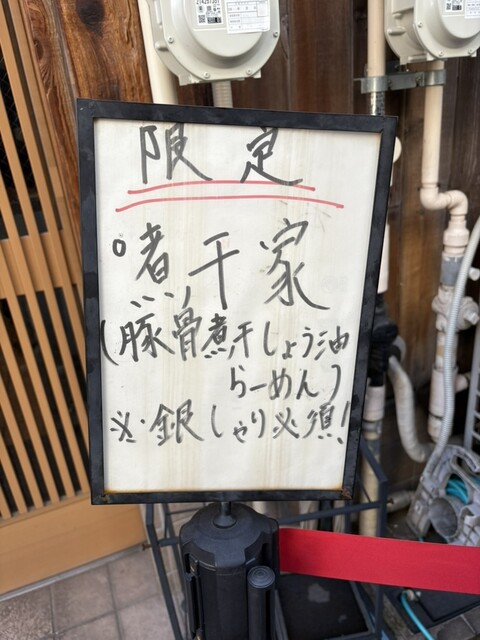 限定
°煮干家
(豚骨煮干しょう油
らーめん)
※・銀しゃり必須!